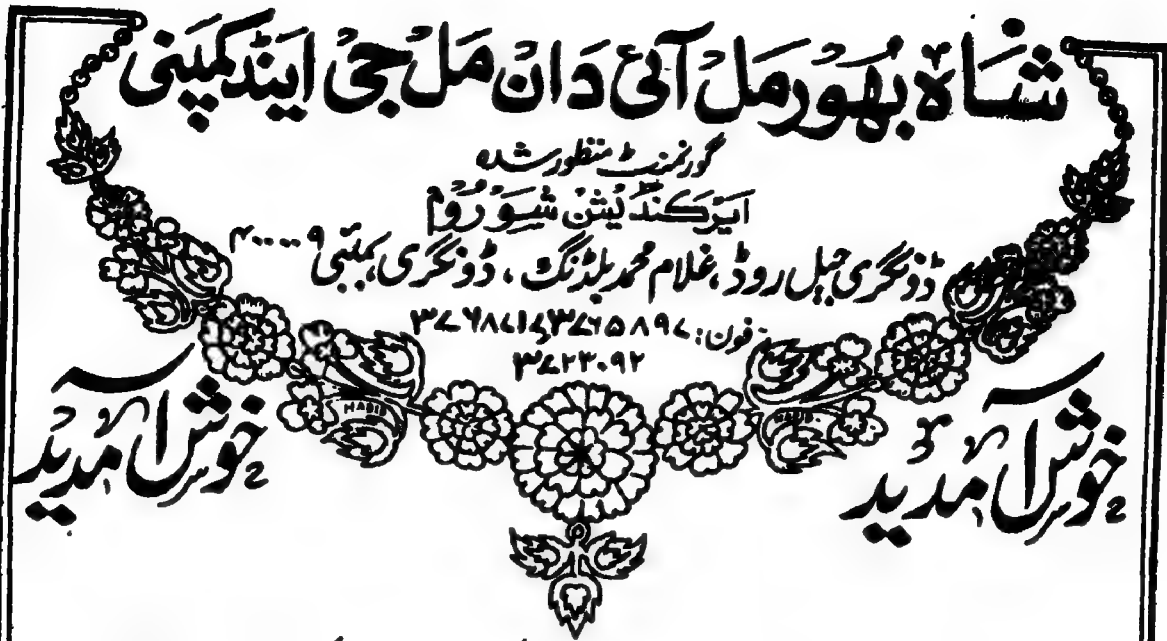 شاہ بھورمل آئی دان مل جی اینڈ کمپنی
گورنمنٹ منظور شدہ
ایرکنڈیشن شوروم
ڈونگری جیل روڈ، غلام محمد بلڈنگ، ڈونگری، بمبئی ۴۰۰۰۰۹
فون: ۳۷۶۵۸۹۷
۳۷۲۳۰۹۲
خوش آمدید
خوش آمدید
HABIB
HABIB